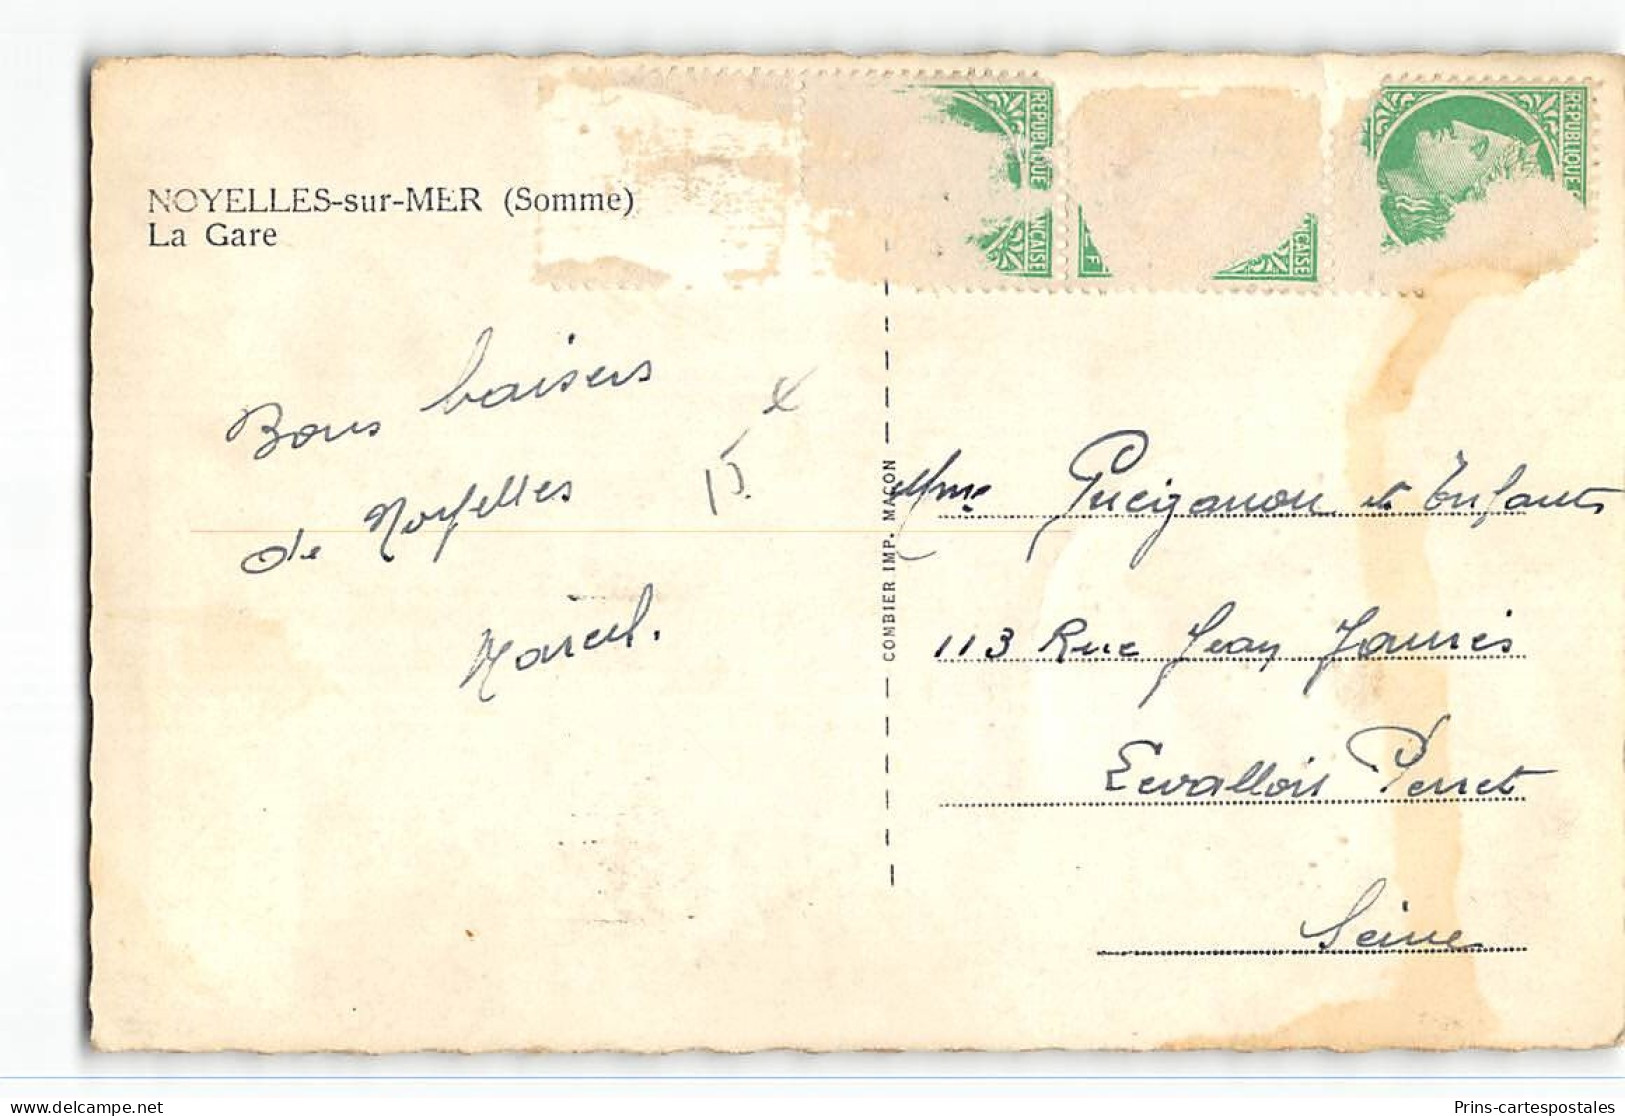 NOYELLES-sur-MER (Somme)
La Gare
REPUBLIQUE FRANÇAISE
F
ÇAISE
REPUBLIQUE
Bons baisers
de Noyelles
Marcel.
15
COMBIER IMP. MACON
Mme et Enfants
113 Rue Jean Jaurès
Levallois Perret
Seine
delcampe.net
Prins-cartespostales